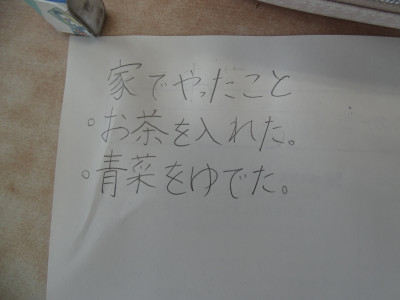 家でやったこと
。お茶を入れた。
。青菜をゆでた。